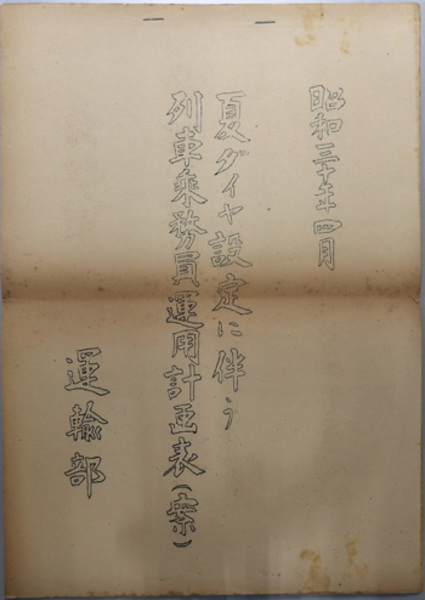 昭和三十年四月
夏ダイヤ設定に伴う
列車乗務員運用計画表(案)
運輸部